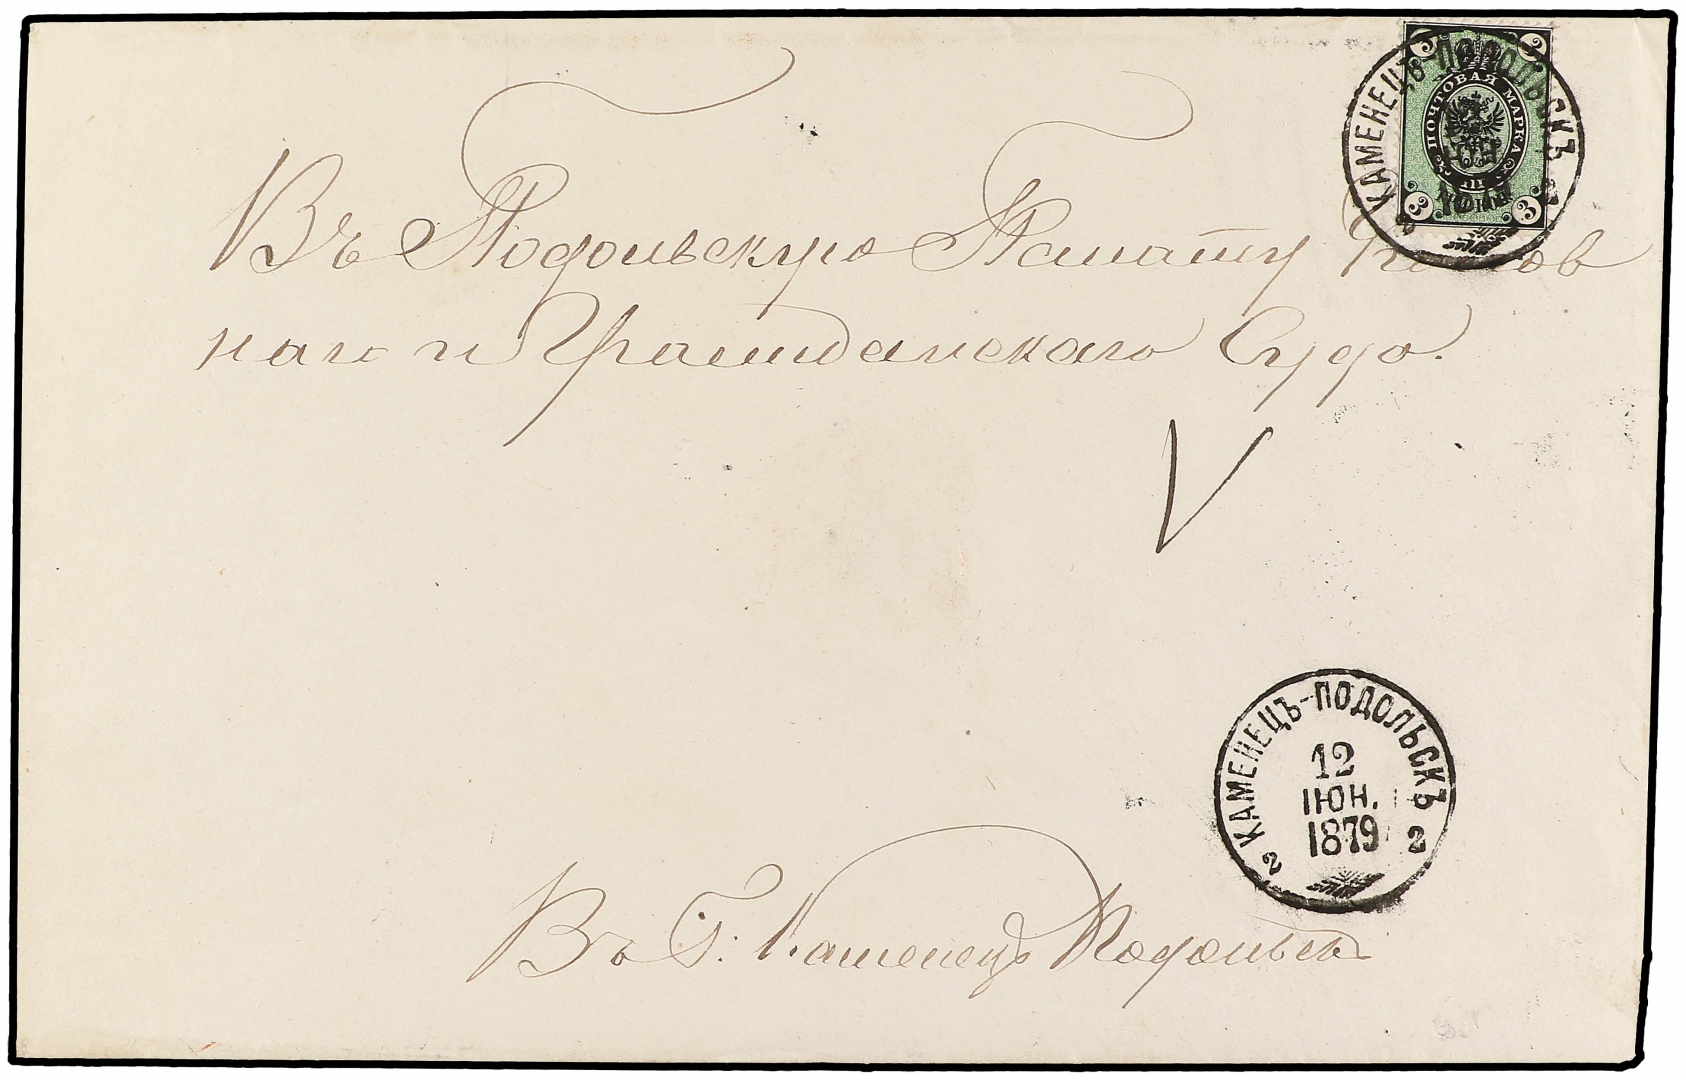 3 3
ПОЧТОВАЯ МАРКА
3 3
КАМЕНЕЦЪ-ПОДОЛЬСКЪ
2 2
Въ Подольскую Палату Уголов
наго и Гражданскаго Суда.
V
КАМЕНЕЦЪ-ПОДОЛЬСКЪ
12
ІЮН.
1879
2 2
Въ Г: Каменецъ Подольскъ